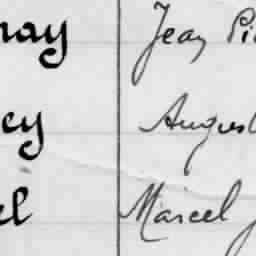 nay Jean Pi
ey August
el Marcel J